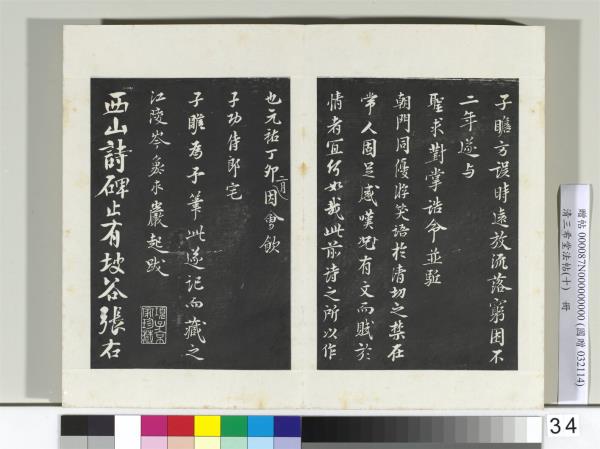 子瞻方誤時遠放流落窮困不
二年遂与
聖求對掌誥命並駈
朝門同優游笑語於清切之禁在
常人固足感嘆况有文而賦於
情者宜何如哉此前詩之所以作
也元祐丁卯二月因會飲
子功侍郎宅
子瞻為予筆此遂記而藏之
江陵岑象求巖起跋
項子京家珍藏
西山詩碑止有坡谷張右
贈帖 000087N000000000 (圖贈 032114)
清三希堂法帖(十) 冊
34